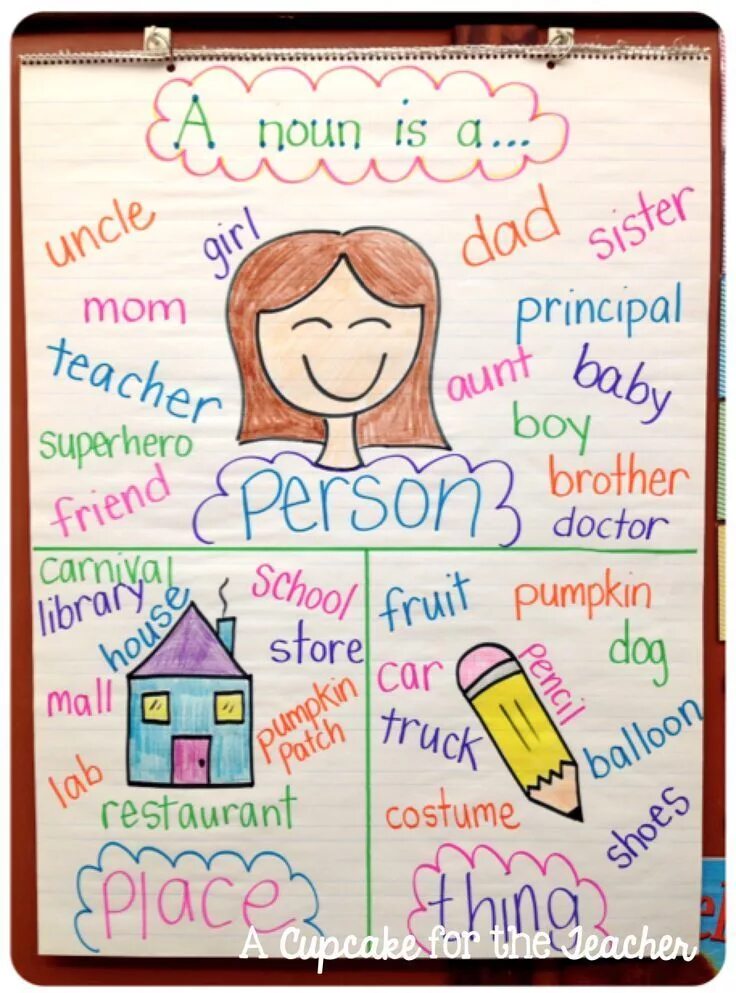 A noun is a...
uncle
girl
dad
sister
mom
principal
teacher
aunt
baby
superhero
boy
friend
person
brother
doctor
carnival
library
house
school
store
mall
pumpkin
patch
lab
restaurant
place
fruit
pumpkin
dog
car
pencil
truck
balloon
costume
shoes
thing
A Cupcake for the Teacher